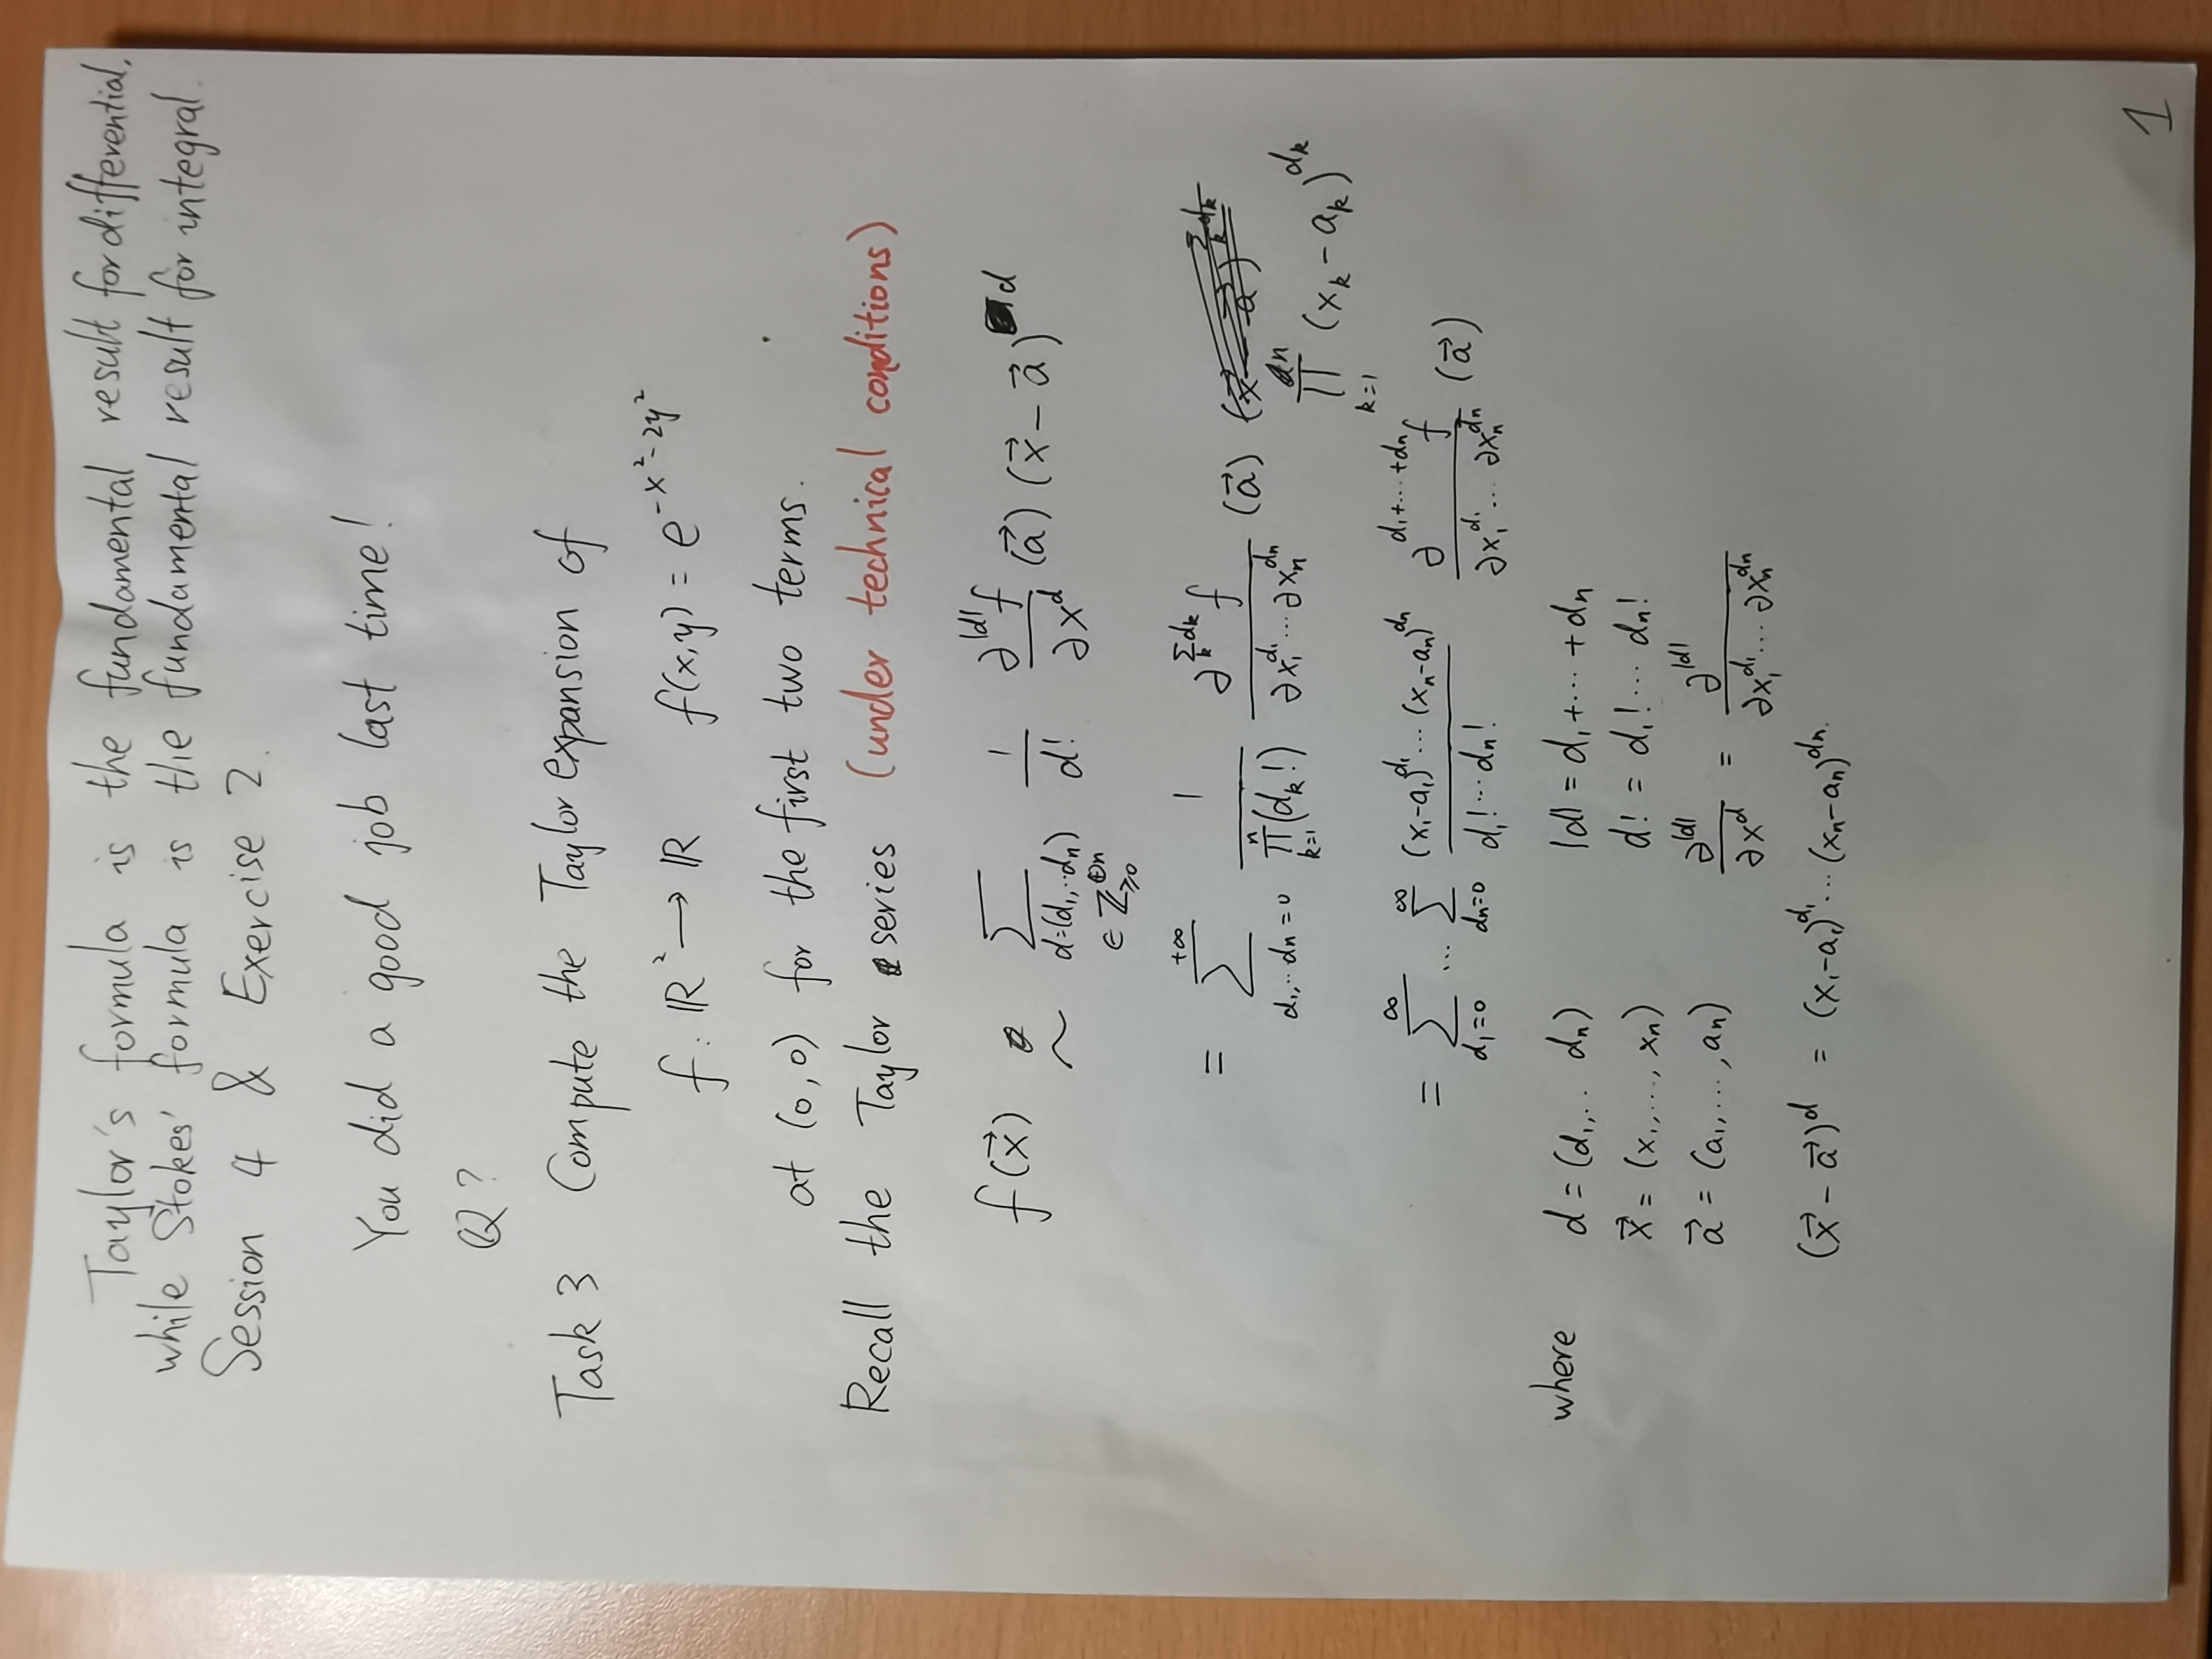 Taylor's formula is the fundamental result for differential,
while Stokes' formula is the fundamental result for integral.
Session 4 & Exercise 2.
You did a good job last time!
Q?
Task 3 Compute the Taylor expansion of
f: ℝ² → ℝ f(x,y) = e^{-x²-2y²}
at (0,0) for the first two terms.
Recall the Taylor series (under technical conditions)
f(x⃗) ~ ∑_{d=(d₁,..dₙ) ∈ ℤ_{≥0}^{⊕n}} 1/d! ∂^{|d|}f/∂x^d (a⃗) (x⃗ - a⃗)^d
= ∑_{d₁,..dₙ=0}^{+∞} 1/∏_{k=1}^{n}(d_k!) ∂^{∑_k d_k} f/∂x₁^{d₁}...∂xₙ^{dₙ} (a⃗)
∏_{k=1}^{n} (x_k - a_k)^{d_k}
= ∑_{d₁=0}^{∞} ... ∑_{dₙ=0}^{∞} (x₁-a₁)^{d₁}...(xₙ-aₙ)^{dₙ}/d₁!...dₙ! ∂^{d₁+...+dₙ}f/∂x₁^{d₁}...∂xₙ^{dₙ} (a⃗)
where d = (d₁,.. dₙ) |d| = d₁+...+dₙ
x⃗ = (x₁,...,xₙ) d! = d₁!...dₙ!
a⃗ = (a₁,...,aₙ) ∂^{|d|}/∂x^d = ∂^{|d|}/∂x₁^{d₁}...∂xₙ^{dₙ}
(x⃗ - a⃗)^d = (x₁-a₁)^{d₁}...(xₙ-aₙ)^{dₙ}.
1